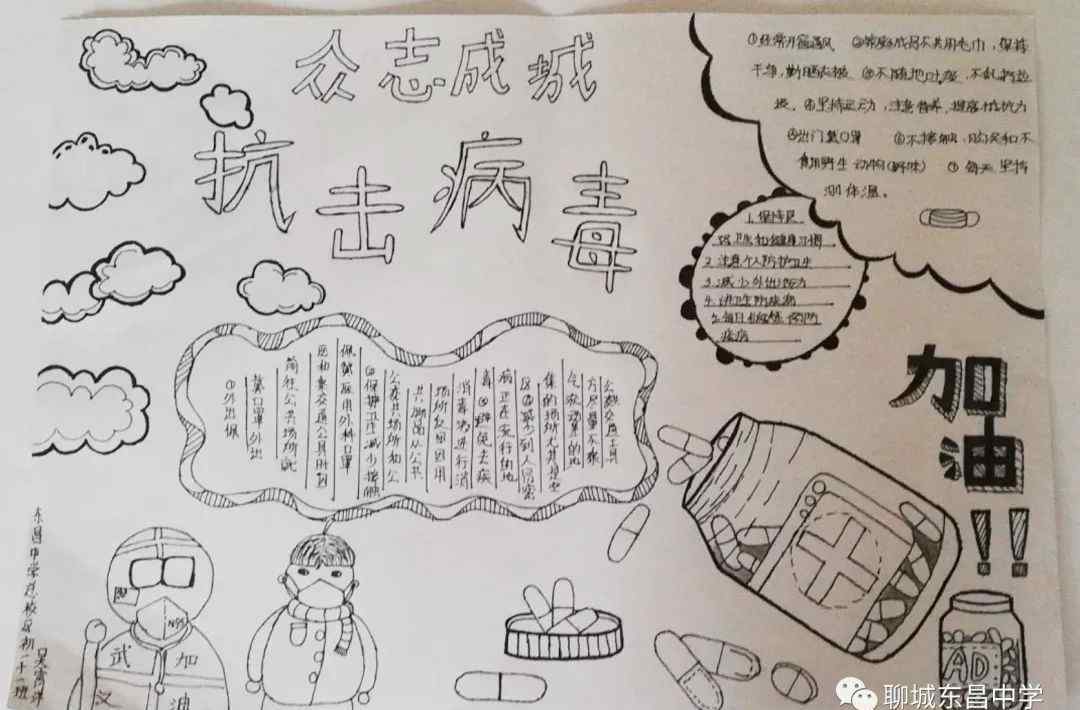 众志成城
抗击病毒
①经常开窗通风 ②家庭成员不共用毛巾，保持
干净，勤晒衣被 ③不随地吐痰，不乱扔垃
圾，④坚持运动，注意营养，提高抵抗力
⑤出门戴口罩 ⑥不接触、购买和不
食用野生动物(野味) ⑦每天坚持
测体温。
1.保持良
好卫生和健康习惯
2.注意个人防护卫生
3.减少外出活动
4.讲卫生防疾病
5.每日 预防
疾病
①外出佩
戴口罩外出
前往公共场所就
医和乘交通公具时因
佩戴医用外科口罩
②保持卫生减少接触
公共场所和公
共
场所返回因用
消毒液进行消
毒③避免去疾
病正在流行的地
区④减少到人员密
集的场所尤其是空
气流动差的地
方尽量不乘
公共交通工具
加油!!
N95
武
加
油
AD
东昌中学 校区初一十一班
聊城东昌中学